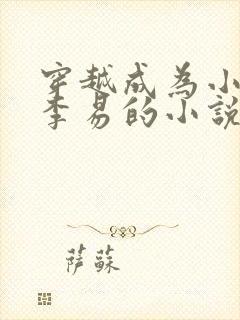 穿越成为小
李易的小説
薩蘇